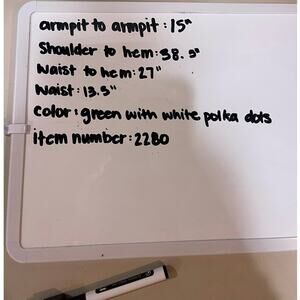 armpit to armpit : 15"
Shoulder to hem: 38.5"
Waist to hem: 27"
Waist: 13.5"
Color: green with white polka dots
item number: 2280